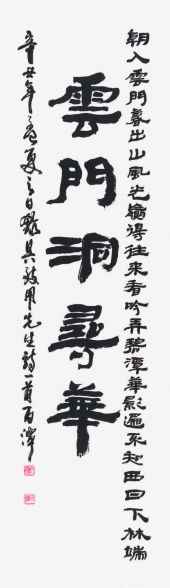 朝入雲門暮出山風光嬴得往來看吟弄碧潭華影遍不知西日下林端
雲門洞尋華
辛丑年之孟夏之日錄吳致用先生詩一首百澤